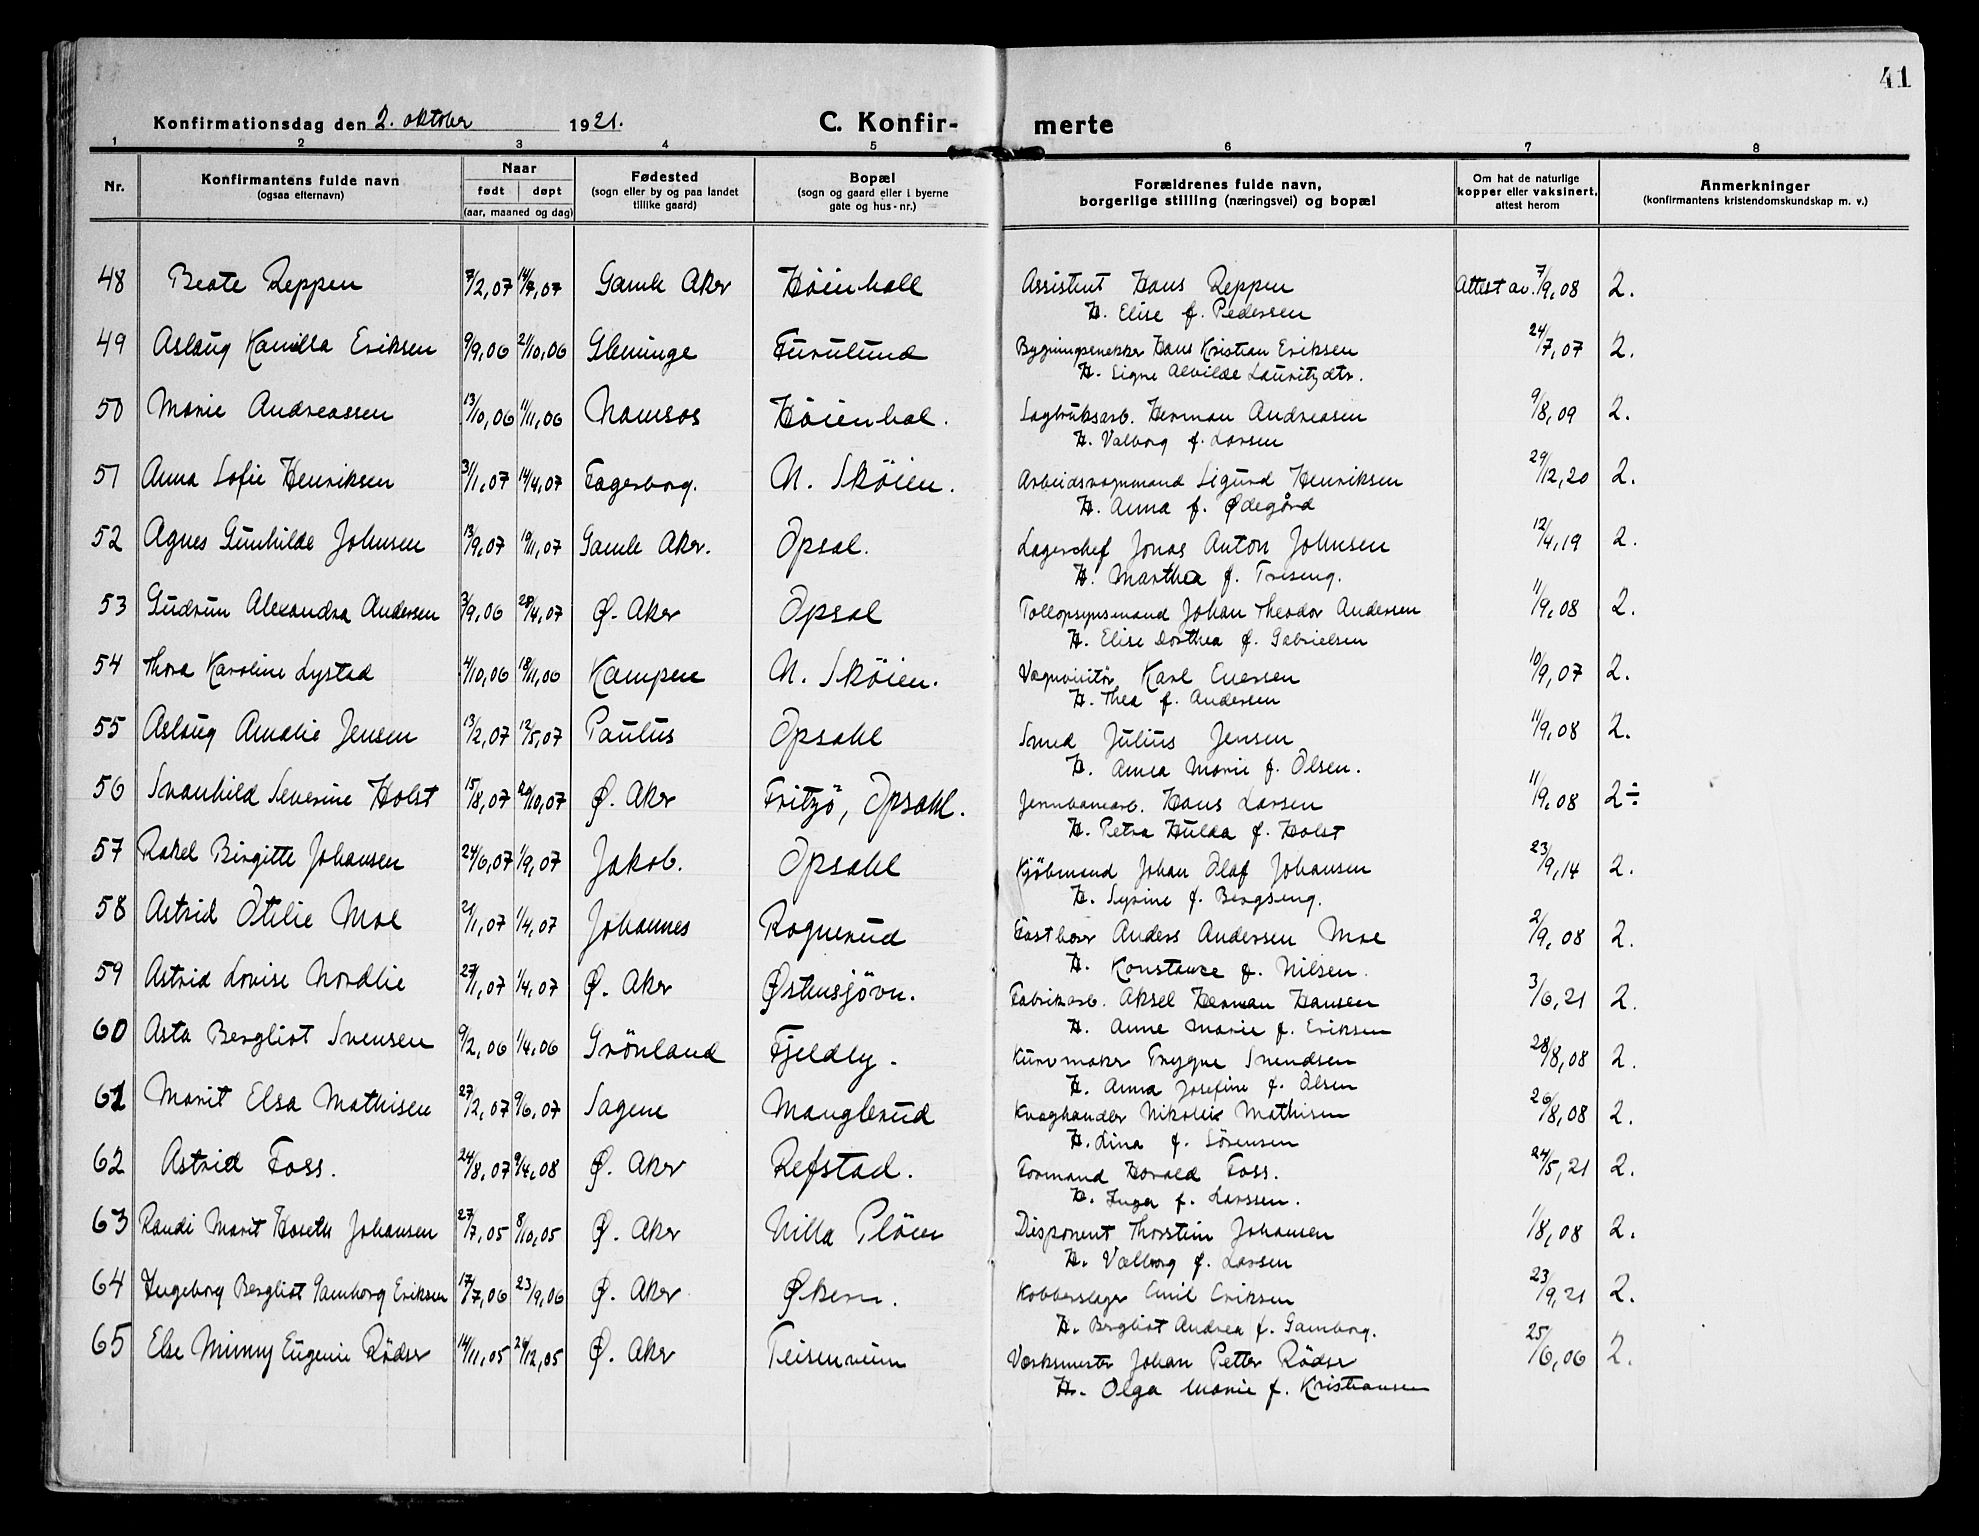 41
Konfirmationsdag den 2. oktober 1921.
C. Konfir- merte
1 2 3 4 5 6 7 8
Nr.
Konfirmantens fulde navn
(ogsaa efternavn)
Naar
født døpt
(aar, maaned og dag)
Fødested
(sogn eller by og paa landet
tillike gaard)
Bopæl
(sogn og gaard eller i byerne
gate og hus-nr.)
Forældrenes fulde navn,
borgerlige stilling (næringsvei) og bopæl
Om hat de naturlige
kopper eller vaksinert,
attest herom
Anmerkninger
(konfirmantens kristendomskundskap m. v.)
48 Beate Reppen 7/2,07 14/7,07 Gamle Aker Høienhall Assistent Hans Reppen Attest av. 7/9,08 2.
H. Elise f. Pedersen
49 Aslaug Kamilla Eriksen 9/9,06 21/10,06 Glemminge Furulund Bygningssnekker Hans Kristian Eriksen 24/7,07 2.
H. Signe Alvilde Lauritzdtr.
50 Marie Andreassen 13/10,06 11/11,06 Namsos Høienhal. Sagbruksarb. Herman Andreasen 9/8,09 2.
H. Valborg f. Larsen
51 Anna Sofie Henriksen 3/1,07 14/4,07 Fagerborg. N. Skøien. Arbeidsvognmand Sigurd Henriksen 29/12,20 2.
H. Anna f. Ødegård
52 Agnes Gunhilde Johnsen 13/9,07 19/11,07 Gamle Aker. Opsal. Lagerchef Jonas Anton Johnsen 12/4,19 2.
H. Martha f. Treseng.
53 Gudrun Alexandra Andersen 3/9,06 28/4,07 Ø. Aker Opsal Tollopsynsmand Johan Theodor Andersen 11/9,08 2.
H. Elise Dorthea f. Gabrielsen
54 Thora Karoline Lystad 4/10,06 18/11,06 Kampen N. Skøien. Vognvisitør Karl Evensen 10/9,07 2.
H. Thea f. Andersen
55 Aslaug Amalie Jensen 13/2,07 12/5,07 Paulus Opsahl Smed Julius Jensen 11/9,08 2.
H. Anna Marie f. Olsen.
56 Svanhild Severine Holst 15/8,07 20/10,07 Ø. Aker Fritzø, Opsahl. Jernbanearb. Hans Larsen 11/9,08 2÷
H. Petra Hulda f. Holst
57 Rakel Birgitte Johansen 24/6,07 1/9,07 Jakob. Opsahl Kjøbmand Johan Olaf Johansen 23/9,14 2.
H. Syrine f. Bergseng.
58 Astrid Otilie Moe 21/1,07 1/4,07 Johannes Rognerud Fasthaer Anders Andersen Moe 2/9,08 2.
H. Konstanse f. Nilsen.
59 Astrid Lovise Nordlie 27/1,07 1/4,07 Ø. Aker Østensjøvn. Fabrikarb. Aksel Herman Hansen 3/6,21 2.
H. Anne Marie f. Eriksen
60 Asta Bergliot Svensen 9/2,06 1/4,06 Grønland Fjeldly. Kurvmaker Trygve Svendsen 28/8,08 2.
H. Anna Josefine f. Olsen
61 Marit Elsa Mathisen 27/2,07 9/6,07 Sagene Manglerud Kvæghandler Nikolai Mathisen 26/8,08 2.
H. Lina f. Sørensen
62 Astrid Foss. 24/8,07 9/4,08 Ø. Aker Refstad. Formand Harald Foss. 24/5,21 2.
H. Inga f. Larssen.
63 Randi Marit Haseth Johansen 27/7,05 8/10,05 Ø. Aker Villa Pløien Disponent Thorstein Johansen 1/8,08 2.
H. Valborg f. Larsen
64 Ingeborg Bergliot Gamborg Eriksen 17/7,06 23/9,06 Ø. Aker Økern. Kobberslager Emil Eriksen 23/9,21 2.
H. Bergliot Andrea f. Gamborg.
65 Else Minny Eugenie Rødser 14/11,05 24/12,05 Ø. Aker Teisenveien Verksmester Johan Petter Rødser 25/6,06 2.
H. Olga Marie f. Kristiansen